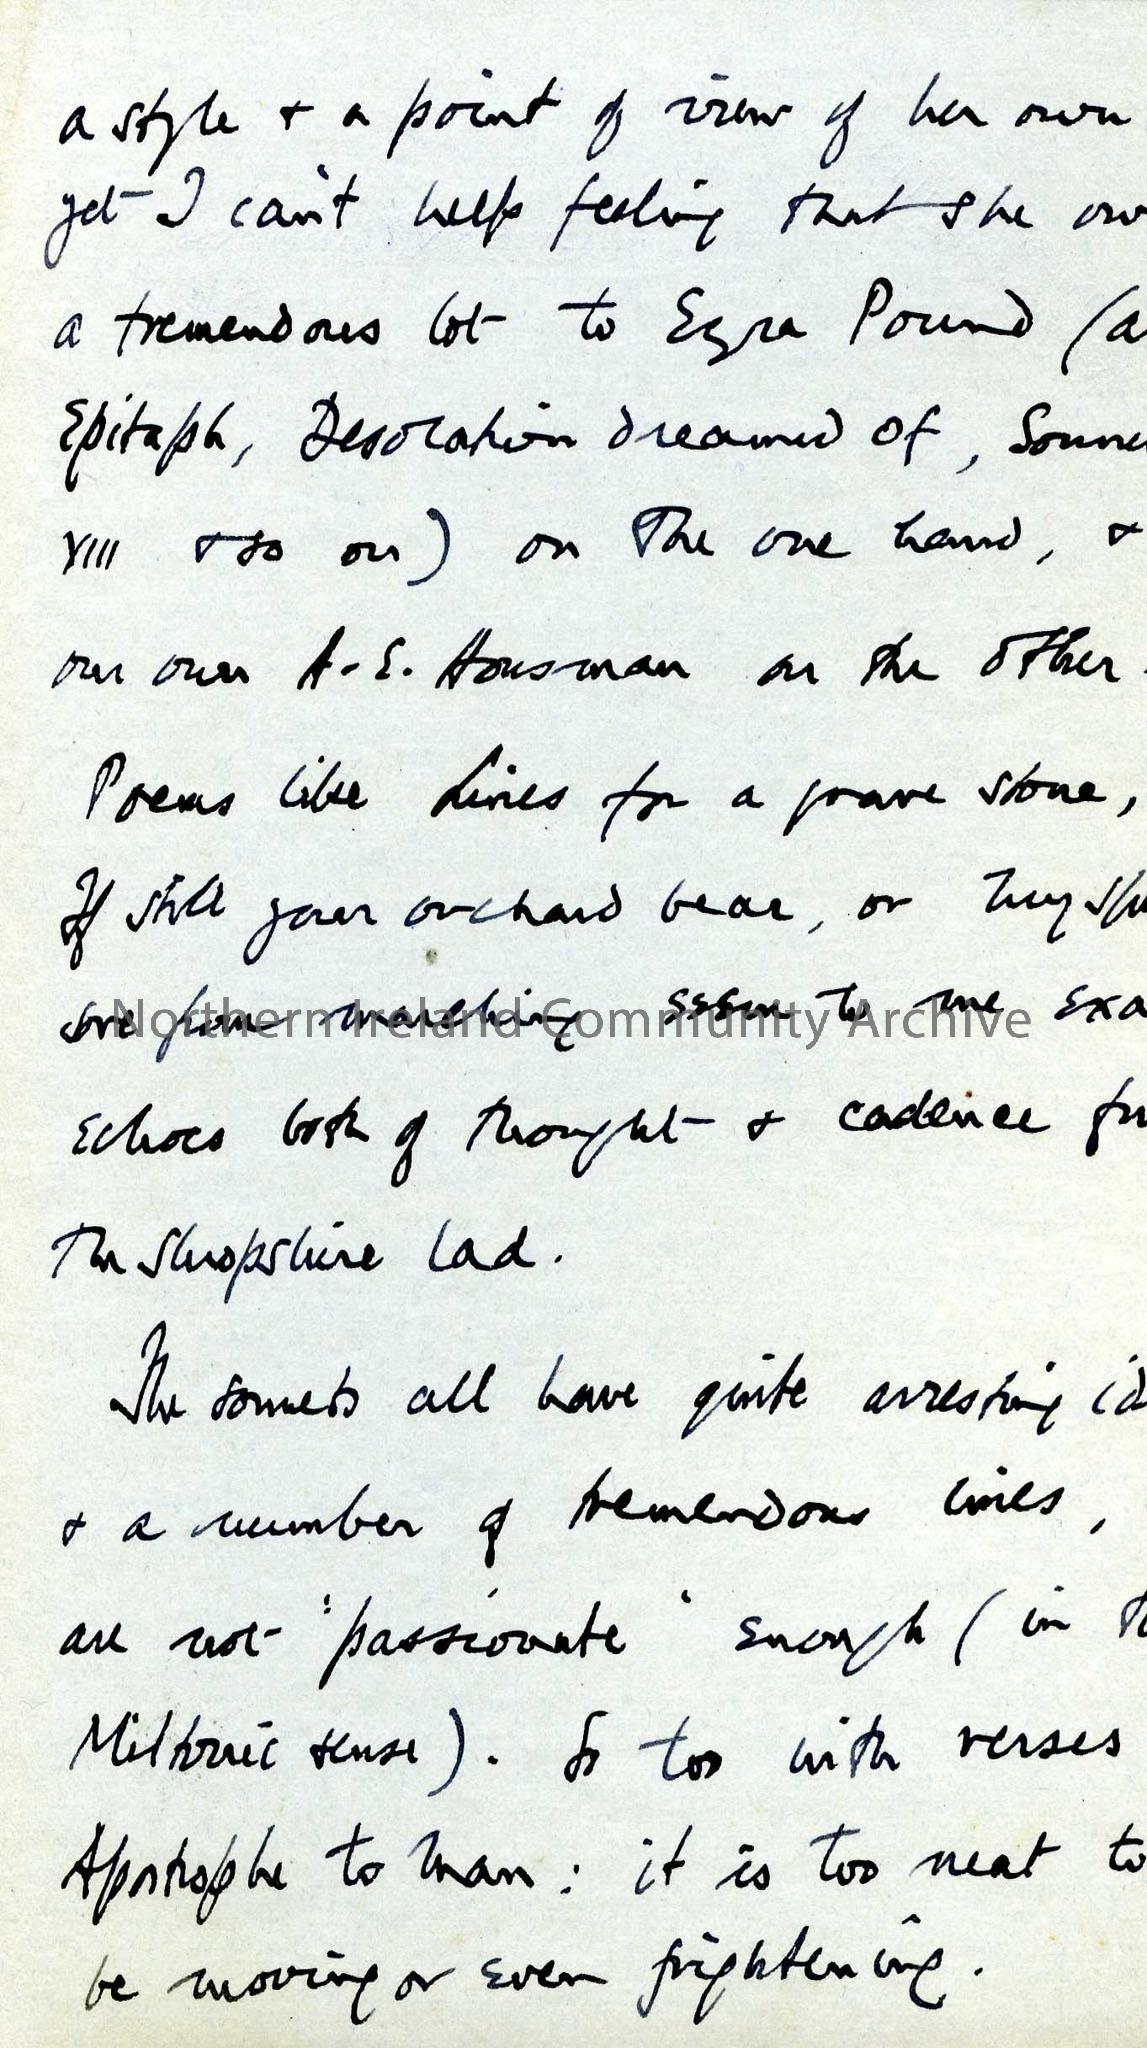 a style + a point of view of her own
yet I can't help feeling that she ow
a tremendous lot to Ezra Pound (a
Epitaph, Desolation dreamed of, Sonne
XIII + so on) on the one hand, +
our own A.E. Housman on the other.
Poems like Lines for a grave stone,
If still your orchard bear, or
sore from marching seem to me exa
Echoes both of thought + cadence fr
The Shropshire Lad.
The sonnets all have quite arresting id
+ a number of tremendous lines,
are not 'passionate' enough (in t
Miltonic sense). So too with verses
Apostrophe to Man: it is too neat to
be moving or even frightening.
Northern Ireland Community Archive